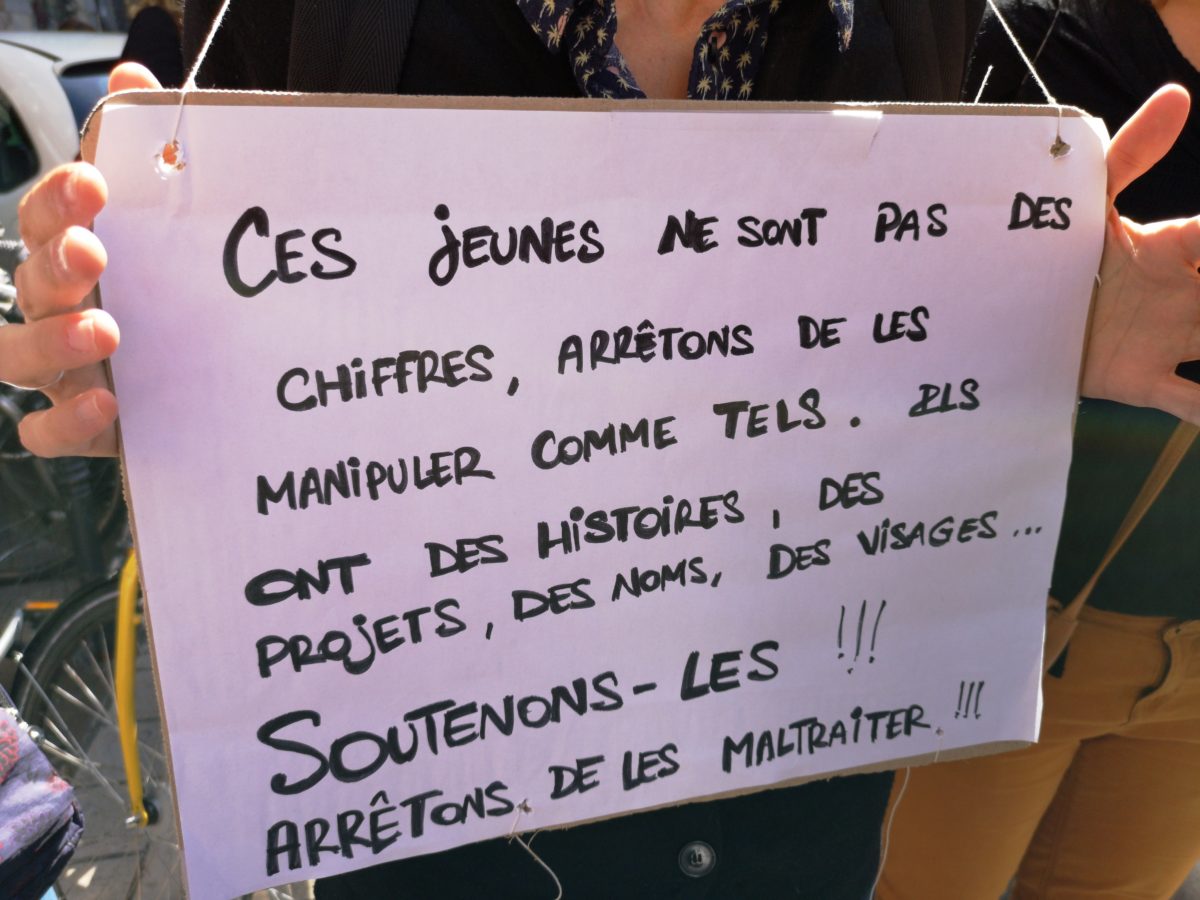 CES JEUNES NE SONT PAS DES
CHIFFRES, ARRÊTONS DE LES
MANIPULER COMME TELS. ILS
ONT DES HISTOIRES, DES
PROJETS, DES NOMS, DES VISAGES...
SOUTENONS-LES !!!
ARRÊTONS DE LES MALTRAITER.!!!